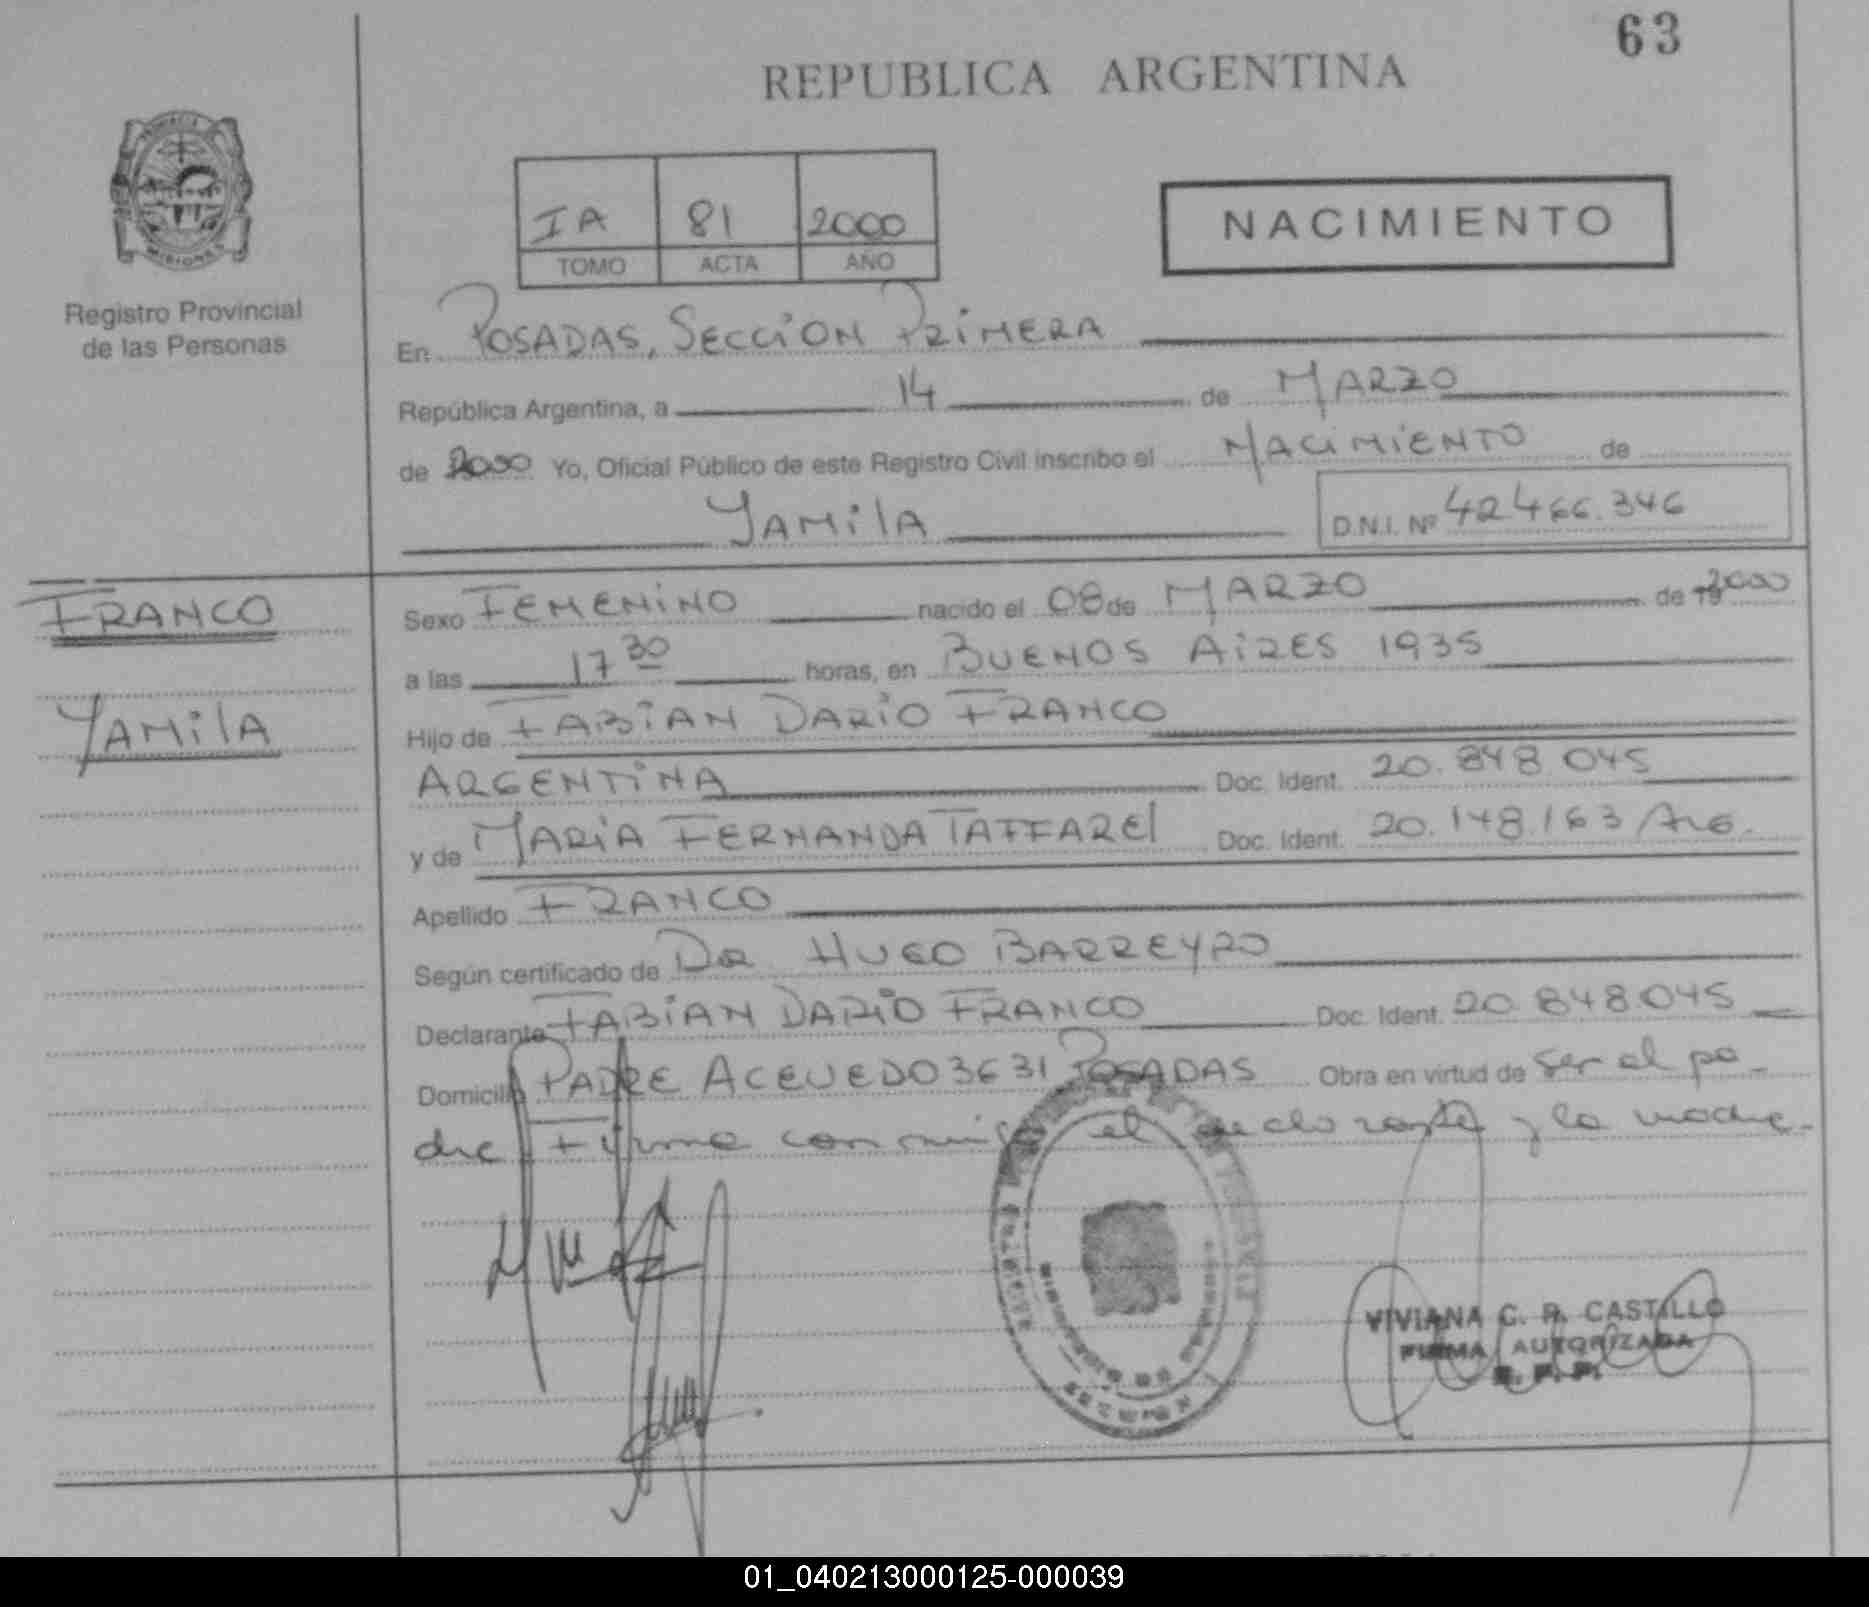 63
REPUBLICA ARGENTINA
IA 81 2000
TOMO ACTA AÑO
NACIMIENTO
Registro Provincial
de las Personas
En POSADAS, SECCION PRIMERA
República Argentina, a 14 de MARZO
de 2000 Yo, Oficial Público de este Registro Civil inscribo el NACIMIENTO de
YAMilA D.N.I. Nº 42466.346
FRANCO
YAMilA
Sexo FEMENINO nacido el 08 de MARZO de 19 2000
a las 17 30 horas, en BUENOS AIRES 1935
Hijo de FABIAN DARIO FRANCO
ARGENTINA Doc. Ident. 20.848.045
y de MARIA FERNANDA TAFFAREl Doc. Ident. 20.148.163 Arg.
Apellido FRANCO
Según certificado de DR HUGO BARREYRO
Declarante FABIAN DARIO FRANCO Doc. Ident. 20.848.045
Domicilio PADRE ACEVEDO 3631 POSADAS Obra en virtud de ser el pa-
dre Firma conmigo el declarante y la madre.
VIVIANA C. R. CASTILLO
FIRMA AUTORIZADA
R. P. P.
01_040213000125-000039